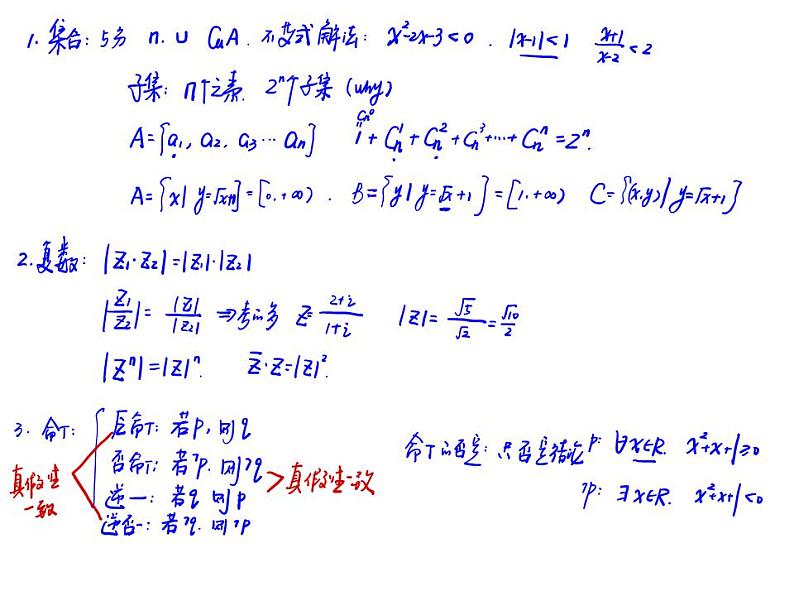 1. 集合: 与方 ∩. ∪ CuA. 不等式解法: x²-2x-3<0. |x-1|<1 (x+1)/(x-2)<2
子集: n个元素. 2ⁿ个子集 (why)
Cn⁰
A={a₁, a₂, a₃…aₙ} 1+Cn¹+Cn²+Cn³+…+Cnⁿ=2ⁿ.
A={x|y=√x+1}=[0,+∞). B={y|y=√x+1}=[1,+∞) C={(x,y)|y=√x+1}
2. 复数: |Z₁·Z₂|=|Z₁|·|Z₂|
|Z₁/Z₂|=|Z₁|/|Z₂| ⇒考的多 Z=(2+i)/(1+i) |Z|=√5/√2=√10/2
|Zⁿ|=|Z|ⁿ. Z̄·Z=|Z|².
3. 命T: 原命T: 若p, 则q
否命T: 若¬p. 则¬q
逆一: 若q 则p
逆否一: 若¬q. 则¬p
真假性一致
真假性一致
命T的否定: 只否定结论 p: ∀x∈R. x²+x+1≥0
¬p: ∃x∈R. x²+x+1<0